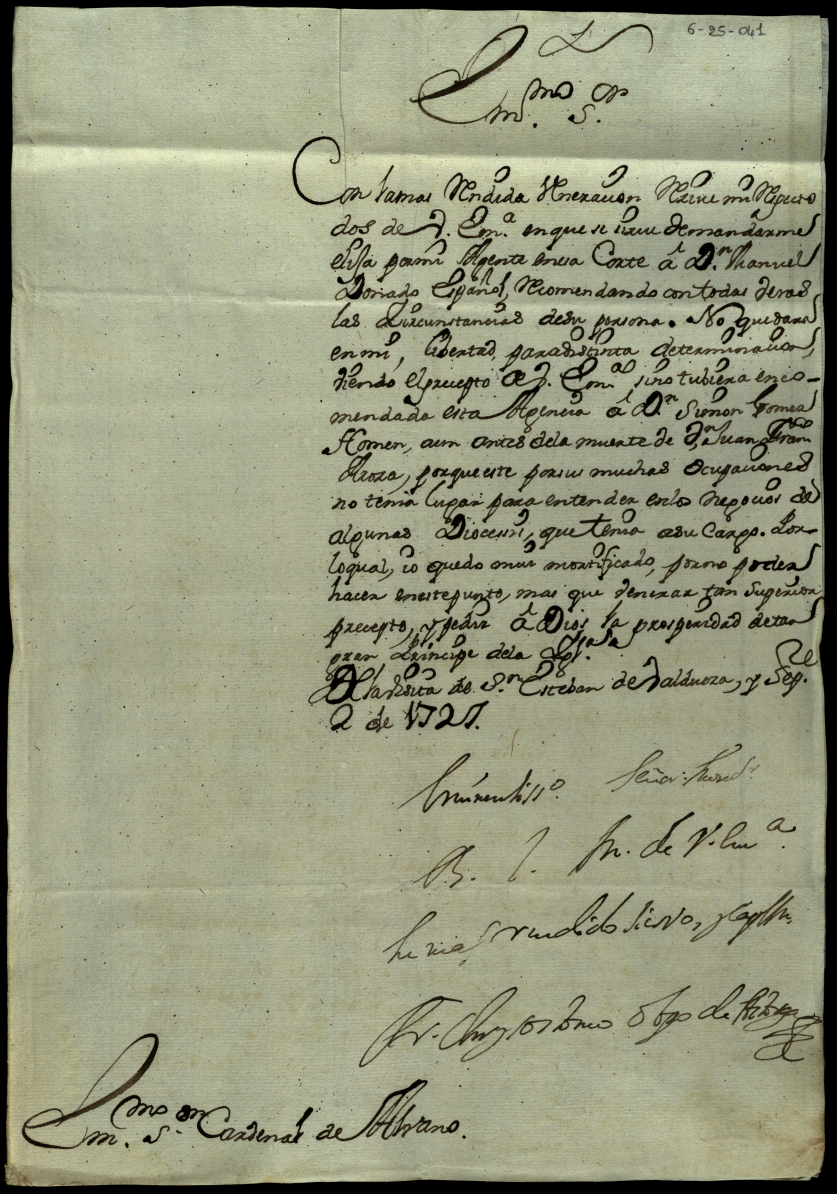 6-25-041
Em.mo S.or
Con la mas Rendida Veneracion Recive mi Respecto
dos de V. Em.a en que se sirve de mandarme
elija por mi Agente en esa Corte â D.n Manuel
Español, Recomendando con todas veras
las Circunstancias de su persona. No quedara
en mi, libertad para distinta determinacion,
viendo el precepto de V. Em.a si no tubiera enco-
mendada esta Agencia â D.n Simon Gomez
Homen, aun antes de la muerte de D.n Juan Fran.co
porque este por sus muchas Ocupaciones
no tenia lugar para entender en los Negocios de
algunas Diocesis, que tenia a su Cargo. Por
lo qual, io quedo mui mortificado, por no poder
hacer en este punto, mas que venerar tan Superior
precepto, y pedir â Dios la prosperidad de tan
gran Principe de la Igl.a
De la Visita de S.n Esteban de Valdueza, y Sep.re
2 de 1727.
Eminentiss.o Señor
B. l. M. de V. Em.a
su mas rendido siervo, y Cap.n
Fr. Chrysostomo Obpo de
Em.mo S.or Cardenal de